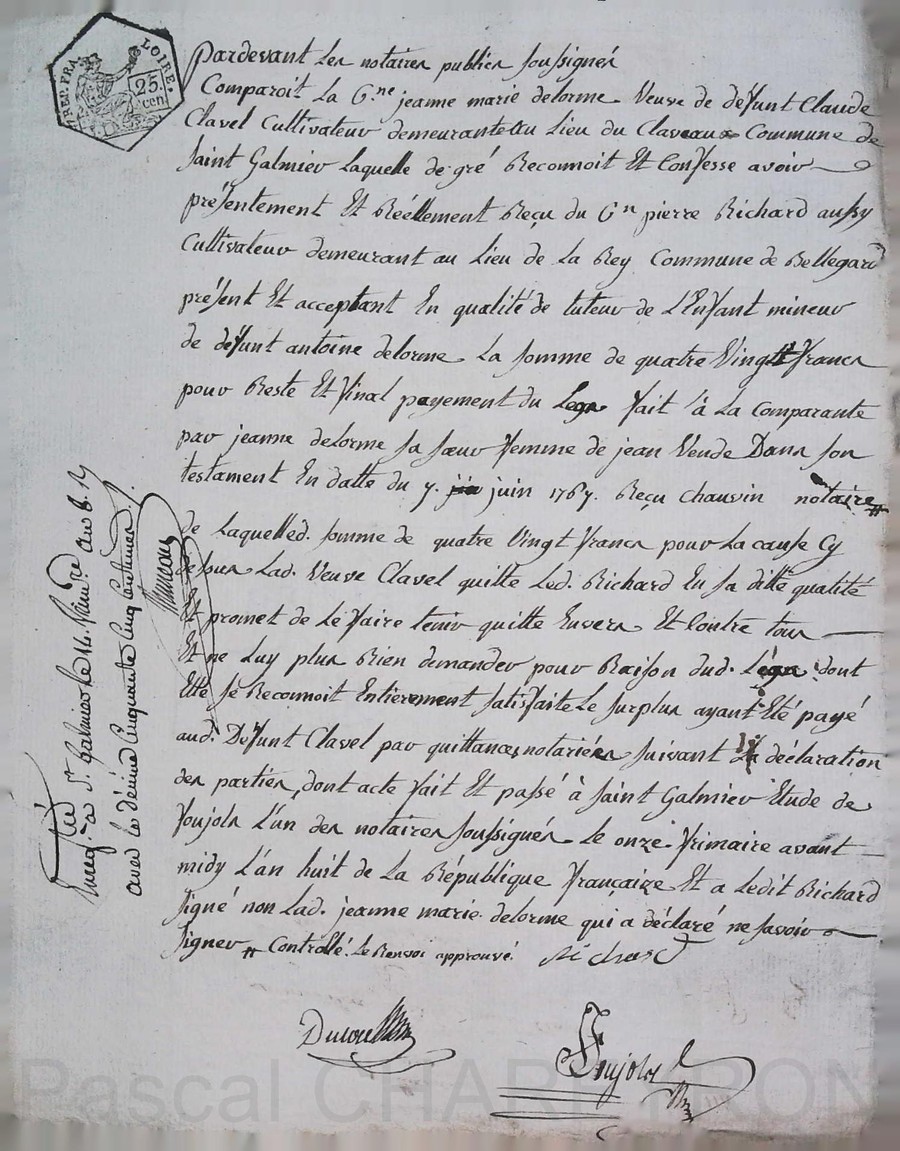 REP. FRA. LOIRE.
25. cen.
Pardevant Les notaires publics soussignés
Comparoit La C.ne jeanne marie delorme Veuve de défunt Claude
Clavel Cultivateur demeurante au Lieu du Claveau Commune de
saint Galmier Laquelle de gré Reconnoit Et Confesse avoir
présentement Et Réellement Reçu du C.n pierre Richard aussy
Cultivateur demeurant au Lieu de La Rey Commune de Bellegard
présent Et acceptant En qualité de tuteur de L'Enfant mineur
de défunt antoine delorme La somme de quatre Vingt francs
pour Reste Et final payement du Legs fait à La Comparante
par jeanne delorme sa sœur femme de jean Vende Dans son
testament En datte du 7. juin 1767. Reçu Chauvin notaire #
de Laquelled. somme de quatre Vingt francs pour La cause Cy
dessus Lad. Veuve Clavel quitte Led. Richard En sa ditte qualité
Et promet de Le faire tenir quitte Envers Et Contre tous
Et ne Luy plus Rien demander pour Raison dud. Legs dont
Elle se Reconnoit Entierement satisfaite Le surplus ayant Eté payé
aud. Défunt Clavel par quittances notariées suivant La déclaration
des parties, dont acte fait Et passé à saint Galmier Etude de
foujols L'un des notaires soussignés Le onze frimaire avant
midy L'an huit de La République française Et a Ledit Richard
signé non Lad. jeanne marie delorme qui a déclaré ne savoir
signer # Controllé. Le Renvoi approuvé. Richard
foujols
Enreg. à St. Galmier Le
avec le décime Cinquante Cinq Centimes
Pascal CHAREYRON